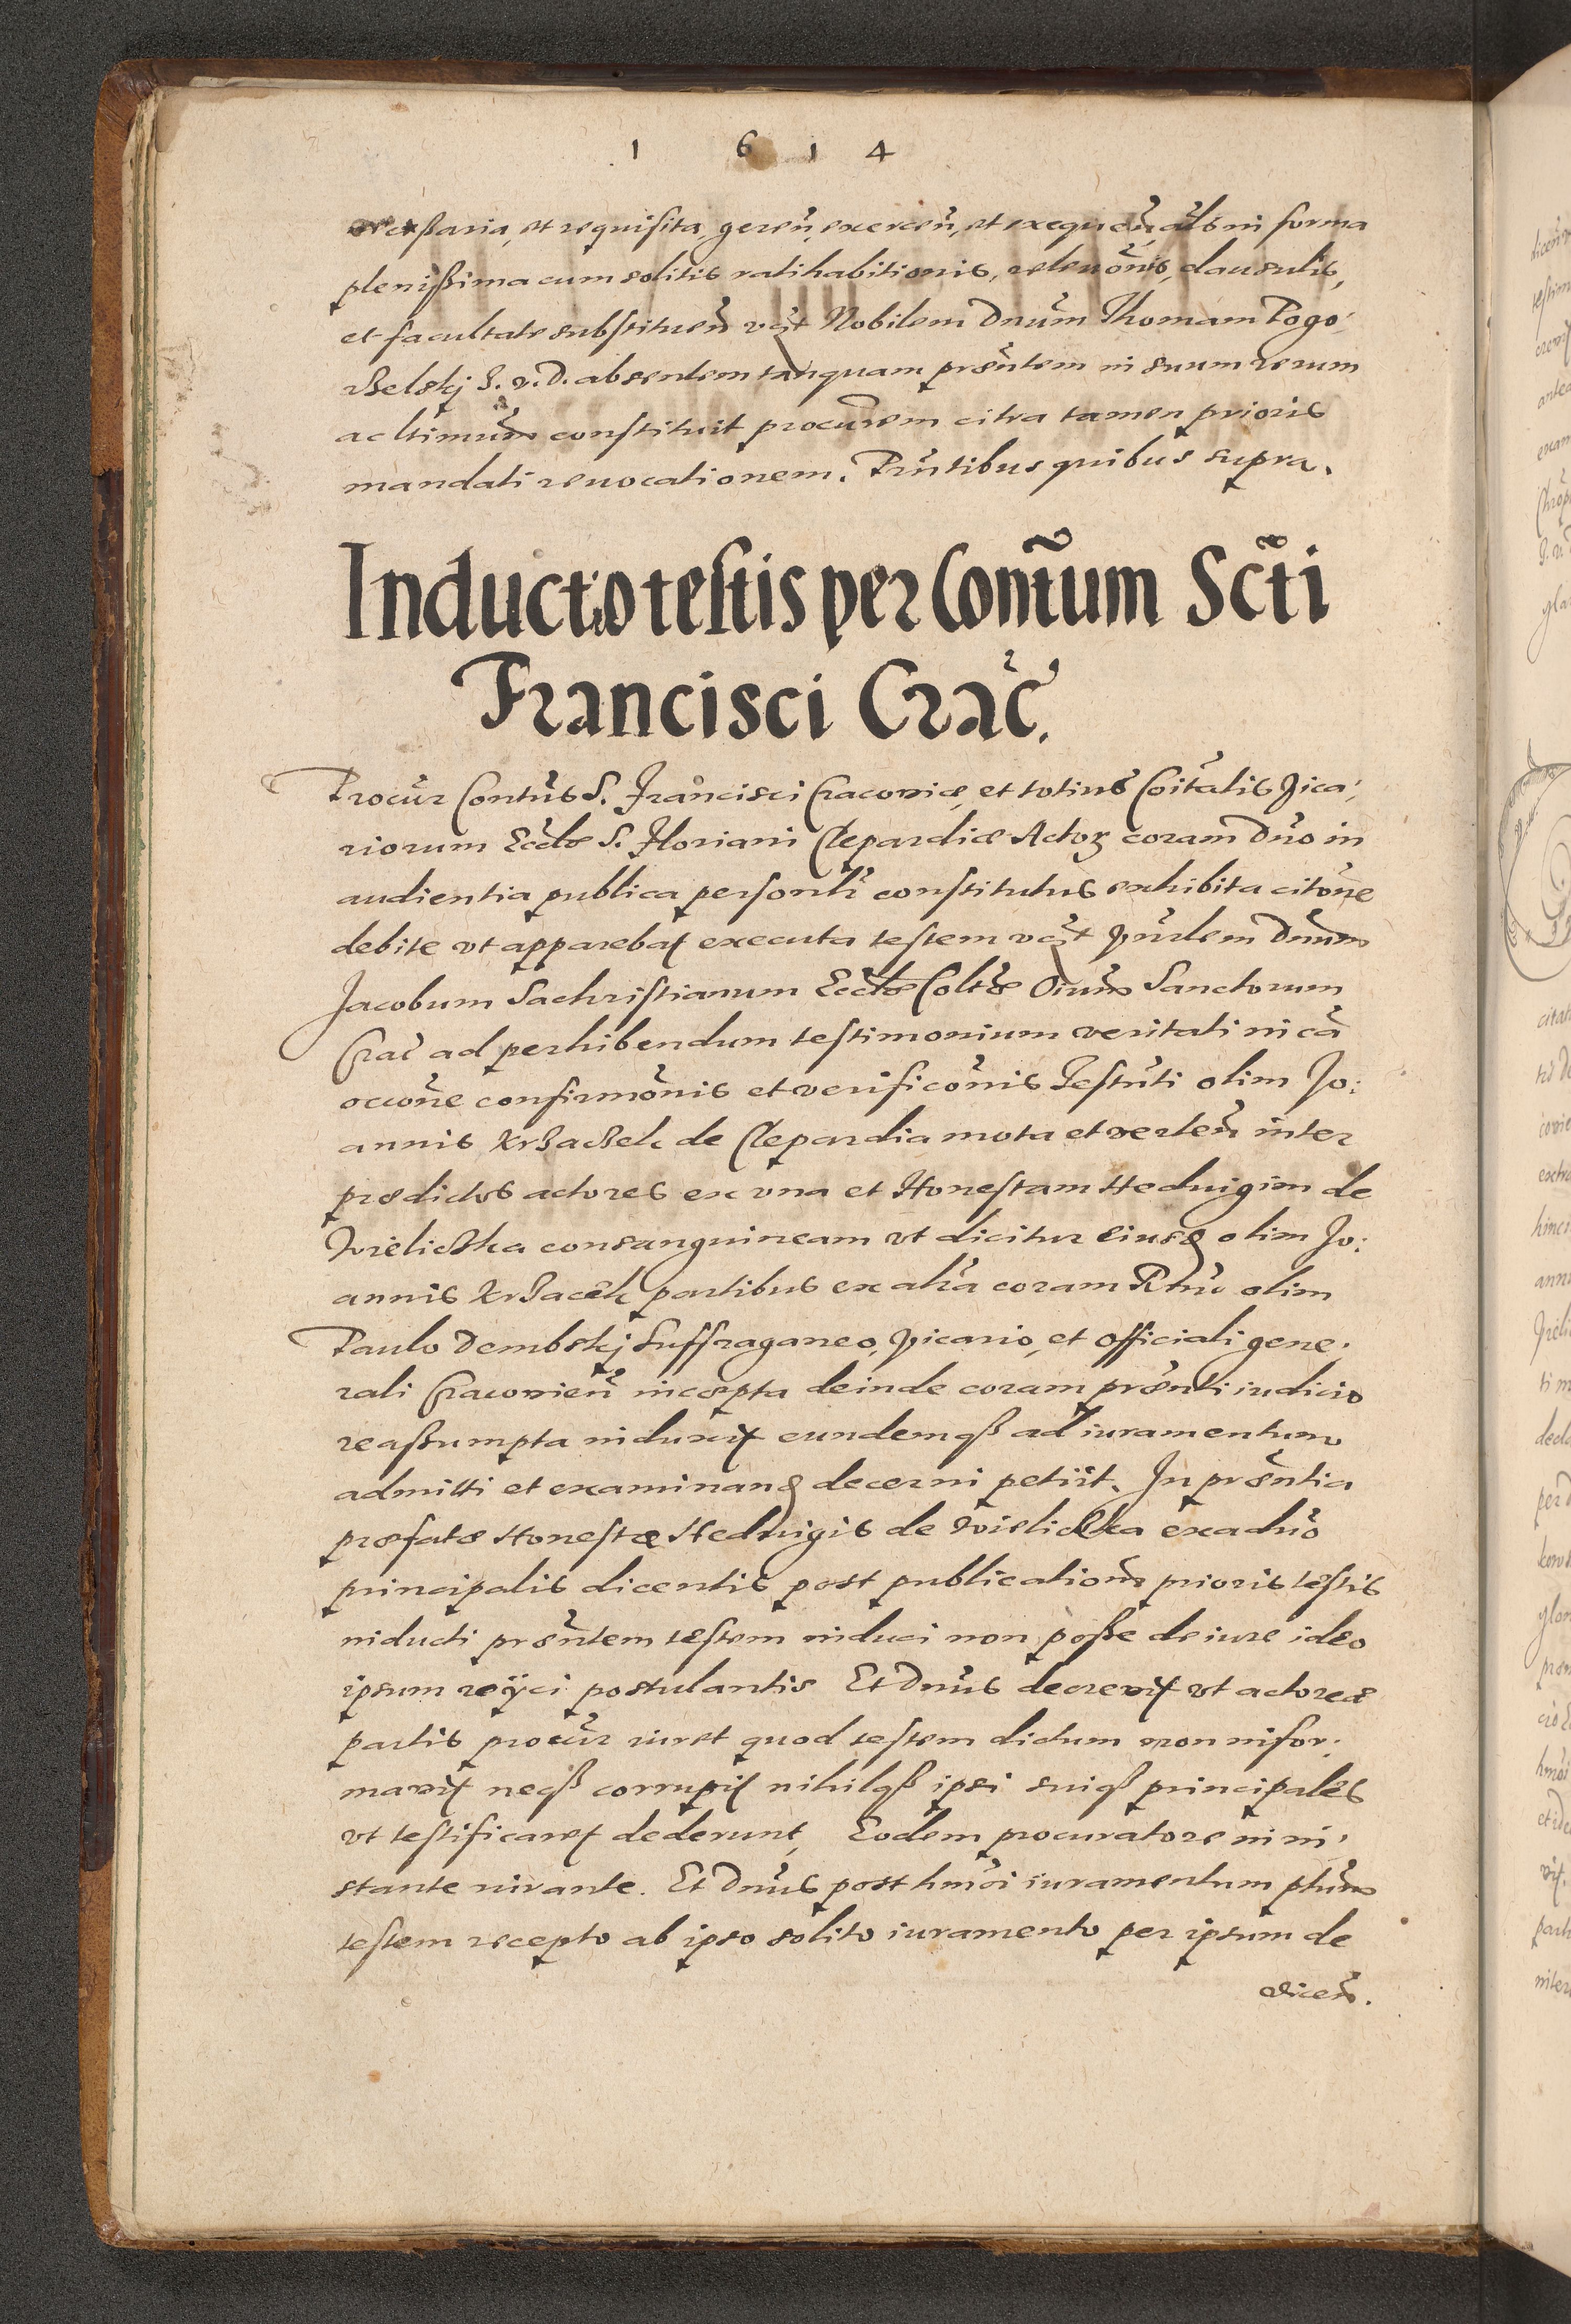 1 6 1 4
necessaria, et requisita, gereñ, exerceñ, et exequeñ, als in forma
plenißima cum solitis ratihabitionis, releuõnis, clausulis,
et facultate substitueñ vczt Nobilem Dnum Thomam Pogo,
rzelskj J. V. D. absentem tanquam prõntem in suum verum
ac ltimum constituit procurem citra tamen prioris
mandati reuocationem. Pñtibus quibus supra.
Inductio testis per Conũtum Scti
Francisci Crac.
Procur Contus S. Francisci Cracoviæ, et totius Coitatis Vica,
riorum Eccłæ S. Floriani Clepardiæ Actor coram Dño in
audientia publica personłr constitutus exhibita citõne
debite vt apparebat executa testem vczt Hñrlem Dnum
Jacobum Sachristianum Eccłæ Coltæ Oium Sanctorum
Crac ad perhibendum testimonium veritati in cã
occõne confirmõnis et verificõnis Testñti olim Jo:
annis Krzaczek de Clepardia mota et verteñ inter
prædictos actores ex vna et Honestam Heduigim de
Wieliczka consanguineam vt dicitur eiusd olim Jo:
annis Krzacek partibus ex altra coram Rndo olim
Paulo Dembskj Suffraganeo, Vicario, et Officiali gene,
rali Cracovieñ incæpta deinde coram prõnti iudicio
reaßumpta induxit eundemqß ad iuramentum
admitti et examinand decerni petiit. In prõntia
præfatæ Honestæ Heduigis de Wieliczka ex aduõ
principalis dicentis post publicationem prioris testis
inducti prõntem testem induci non poße de iure ideo
ipsum reÿci postulantis Et Dnus decrevit vt actoreæ
partis procur iuret quod testem dictum non infor,
mavit neqß corrupit nihilqß ipsi suiqß principales
vt testificaret dederunt, Eodem procuratore in in,
stante iurante. Et Dnus post hmõi iuramentum ptum
testem recepto ab ipso solito iuramento per ipsum de
diceñ.